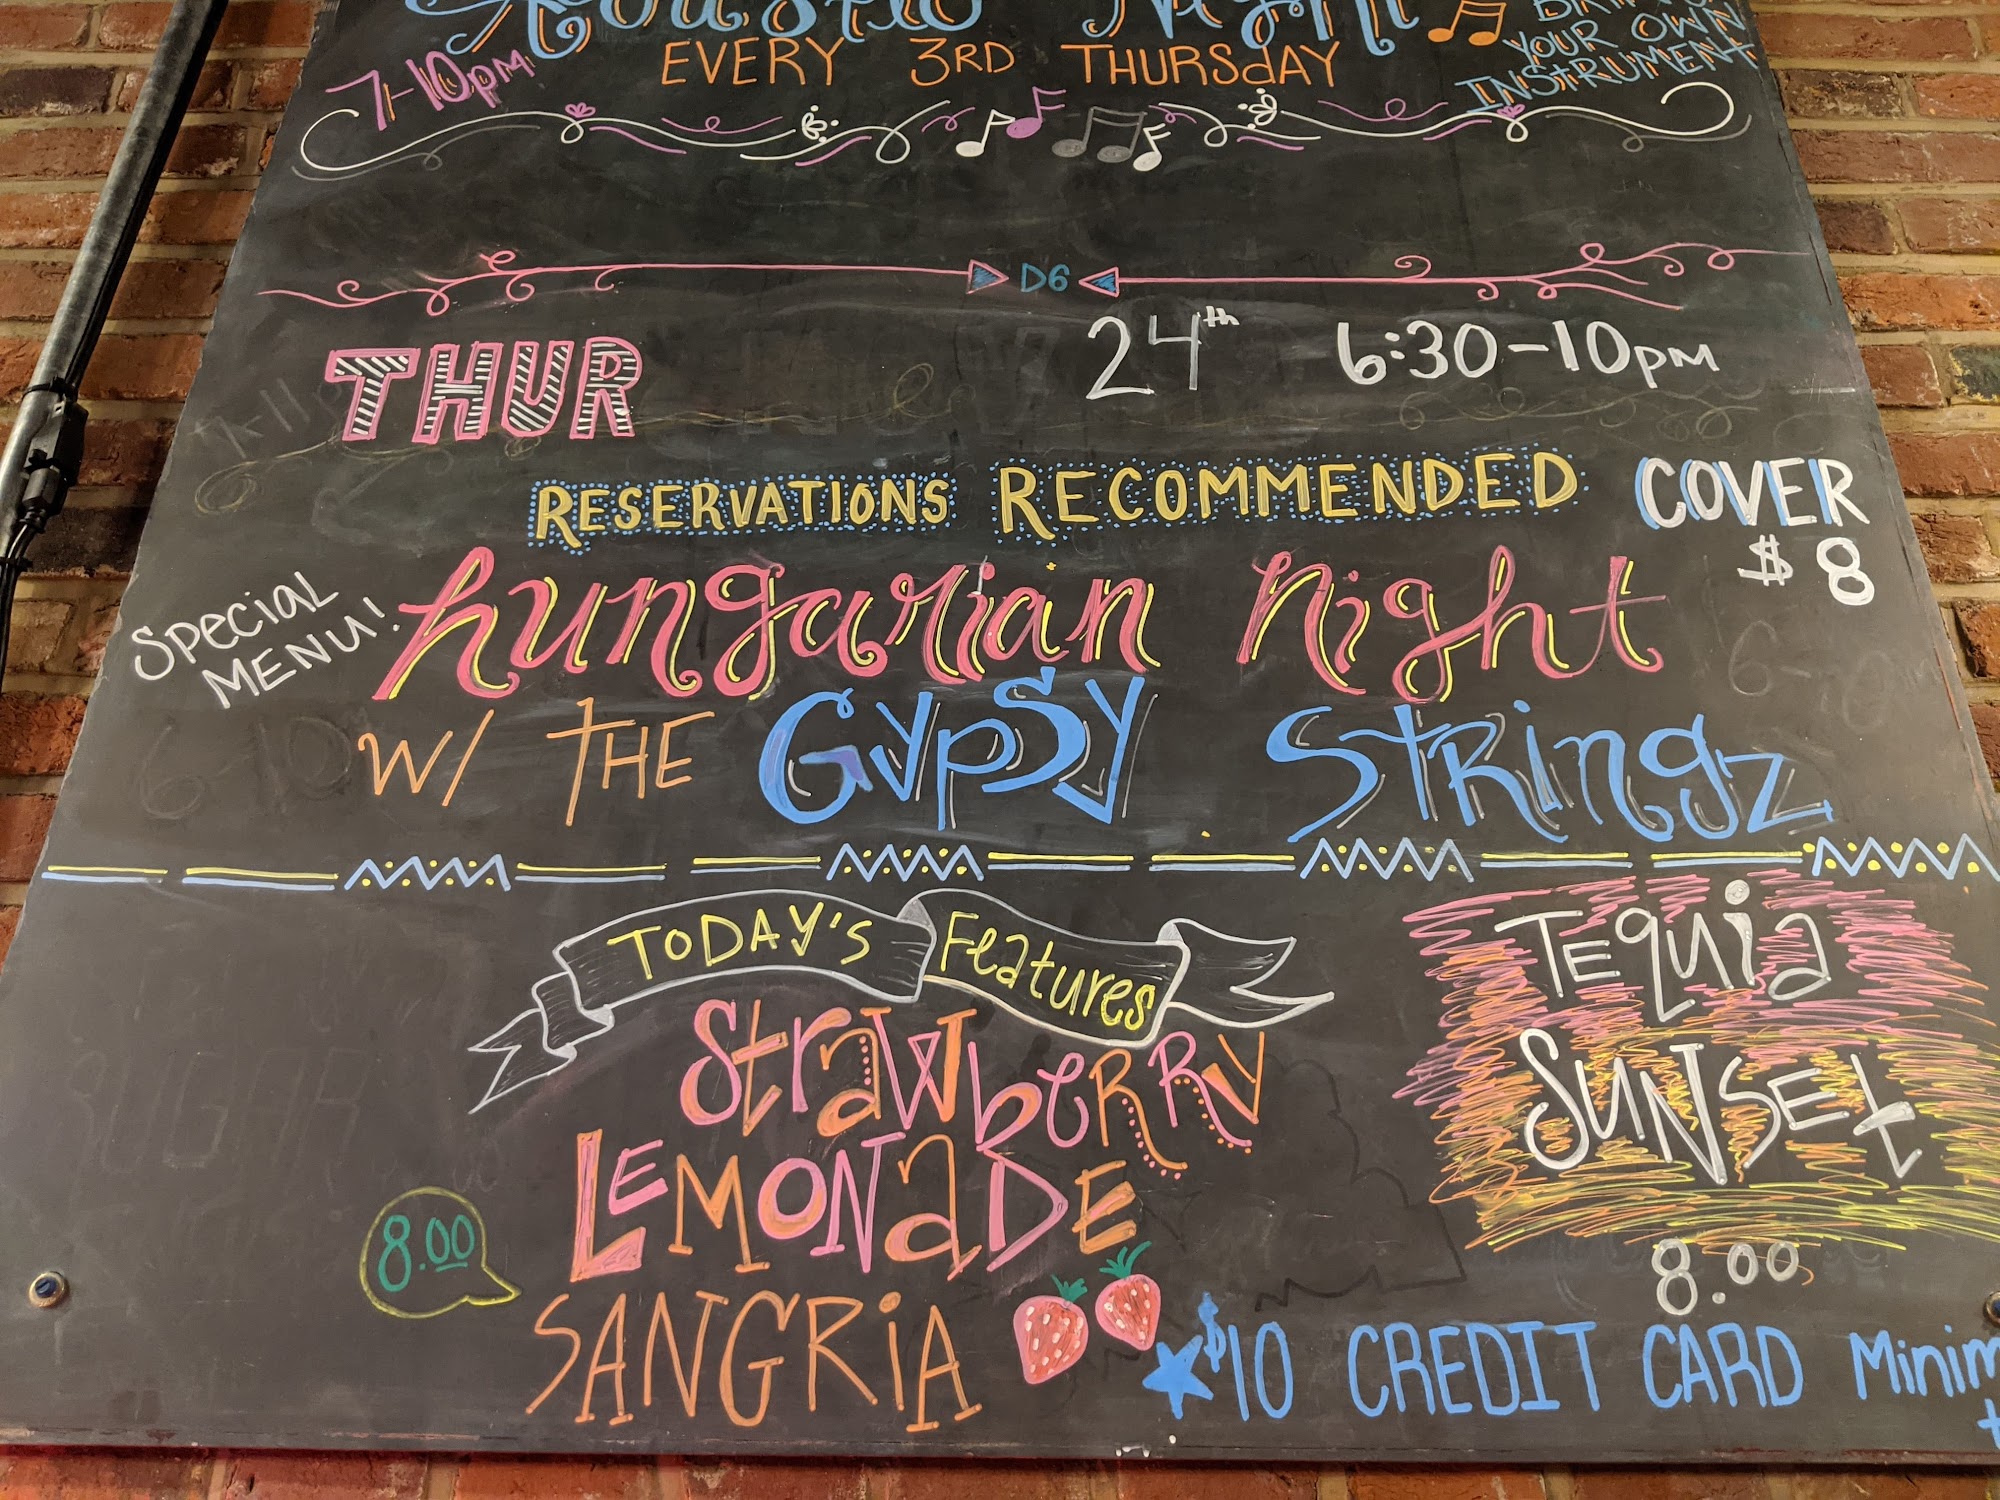 Acoustic Night
YOUR OWN
INSTRUMENT
7-10pm
EVERY 3RD THURSdAY
D6
THUR 24th 6:30-10pm
RESERVATIONS RECOMMENDED
COVER
$8
SPecial
MENU!
hungarian night
W/ THE GypSy StRingz
TODAY'S Features
Strawberry
LEMONaDE
SANGRiA
8.00
TEquia
SUNSEt
8.00
$10 CREDIT CARD